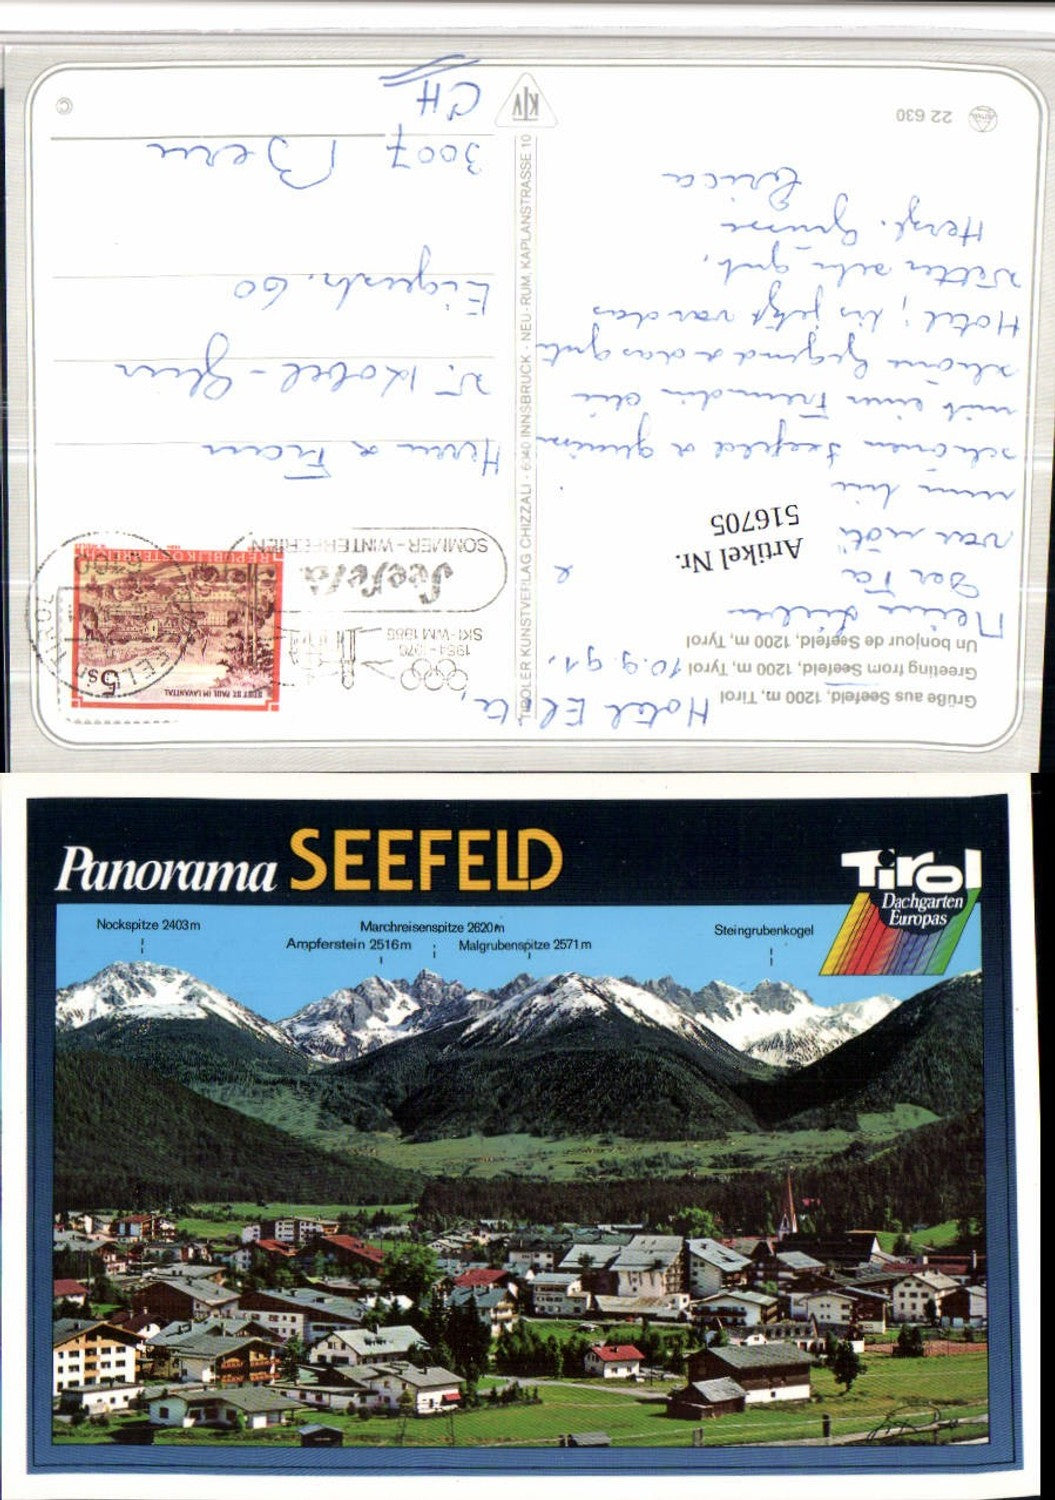 Grüße aus Seefeld, 1200 m, Tirol
Greeting from Seefeld, 1200 m, Tyrol
Un bonjour de Seefeld, 1200 m, Tyrol
Hotel Elite,
10.9.91.
Meine Lieben
Der Fa
nun bin
schönen Seefeld & geniesse
mit einer Freundin die
schöne Gegend & das gute
Hotel; bis jetzt war das
Wetter sehr gut.
Herzl. Grüsse
Erica
Artikel Nr.
516705
22 630
TIROLER KUNSTVERLAG CHIZZALI · 6040 INNSBRUCK - NEU-RUM, KAPLANSTRASSE 10
KTV
1964 - 1976
SKI-WM 1985
Seefeld
SOMMER-WINTERFERIEN
6100
TIROL
STIFT ST. PAUL IM LAVANTTAL
5 S
REPUBLIK ÖSTERREICH
Herrn & Frau
Eigerstr. 60
3007 Bern
CH
©
Panorama SEEFELD
Tirol
Dachgarten
Europas
Nockspitze 2403 m
Marchreisenspitze 2620 m
Ampferstein 2516 m
Malgrubenspitze 2571 m
Steingrubenkogel